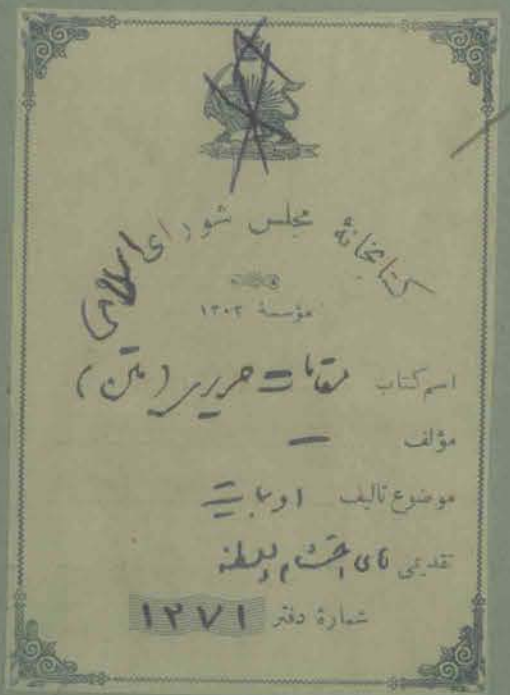 کتابخانهٔ مجلس شورای اسلامی
مؤسسهٔ ۱۳۰۲
اسم کتاب مقامات حریری (متن)
مؤلف —
موضوع تالیف ادبیات
تقدیمی آقای احتشام السلطنه
شمارهٔ دفتر ۱۲۷۱